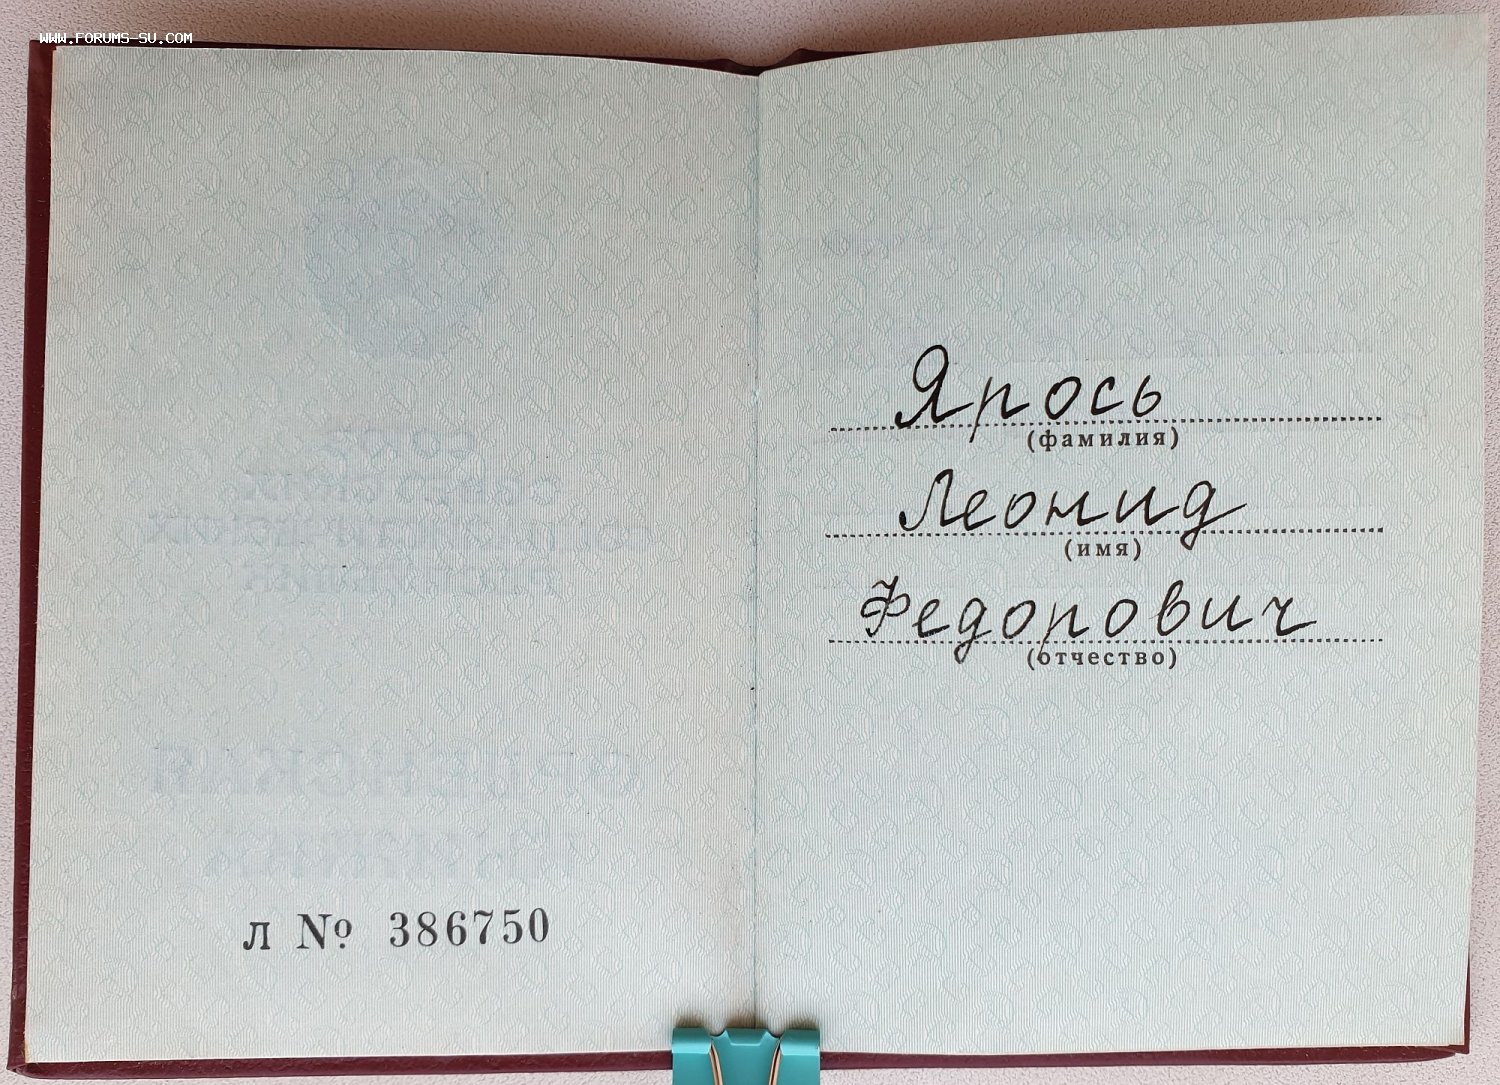 WWW.FORUMS-SU.COM
Л № 386750
Ярось
(фамилия)
Леонид
(имя)
Федорович
(отчество)